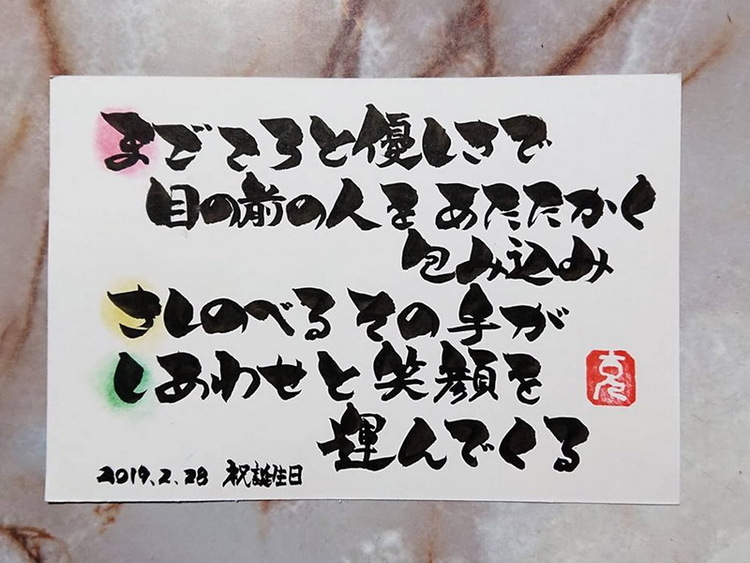 まごころと優しさで
目の前の人をあたたかく
包み込み
さしのべるその手が
しあわせと笑顔を
運んでくる
2019.2.28 祝誕生日